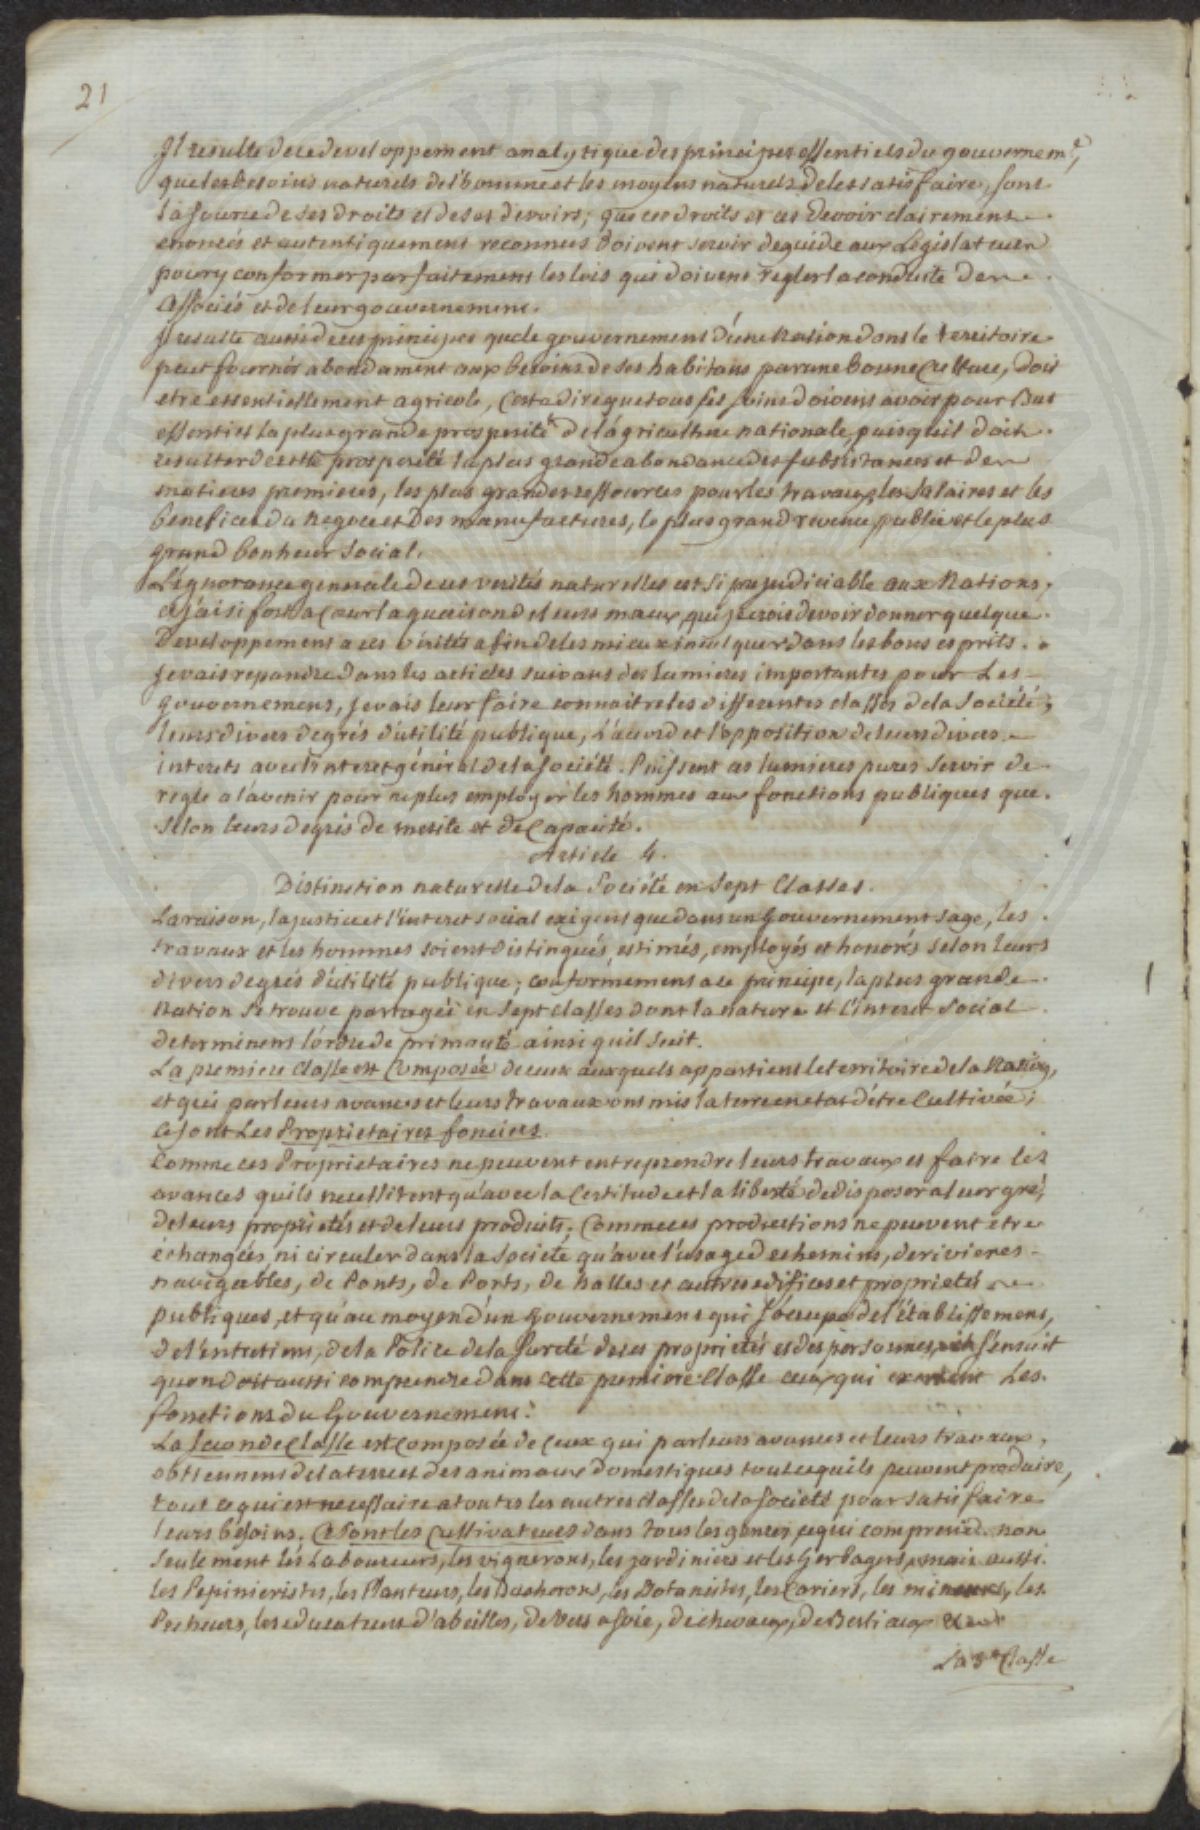 21
Il resulte de ce developpement analytique des principes essentiels du gouvernem.t,
que les besoins naturels de l'homme et les moyens naturels de les satisfaire, sont
la source de ses droits et de ses devoirs; que ces droits et ces devoir clairement
enoncés et autentiquement reconnus doivent servir de guide aux Législateurs
pour y conformer parfaitement les lois qui doivent regler la conduite des
associés et de leur gouvernement.
Il resulte aussi de ces principes que le gouvernement d'une Nation dont le territoire
peut fournir abondament aux besoins de ses habitans par une bonne Culture, doit
etre essentiellement agricole, c'est a dire que tous ses soins doivent avoir pour But
essentiel la plus grande prosperité de l'agriculture nationale, puisqu'il doit
resulter de cette prosperité la plus grande abondance des subsistances et des
matieres premieres, les plus grandes ressources pour les travaux, les salaires et les
benefices du Negoce et Des manufactures, le plus grand revenu public et le plus
grand bonheur social.
L'ignorance generale de ces verités naturelles est si prejudiciable aux Nations,
et j'ai si fort a Cœur la guerison de leurs maux, que je crois devoir donner quelque
Developpement a ces vérités afin de les mieux inculquer dans les bons esprits.
Je vais repandre dans les articles suivans des lumieres importantes pour Les
gouvernemens, je vais leur faire connaitre les differentes classes de la Société,
leurs divers degrés d'utilité publique, L'acord et l'opposition de leurs divers
interets avec l'interet général de la société. Puissent ces lumieres pures servir de
regle a l'avenir pour ne plus employer les hommes aux fonctions publiques que
selon leurs degrés de merite et de Capacité.
Article 4.
Distinction naturelle de la Société en Sept Classes.
La raison, la justice et l'interet social exigent que dans un Gouvernement sage, les
travaux et les hommes soient distingués, estimés, employés et honorés selon leurs
divers degrés d'utilité publique; conformement a ce principe, la plus grande
Nation se trouve partagée en Sept Classes dont la nature et l'interet Social
determinent l'ordre de primauté ainsi qu'il suit.
La premiere Classe est Composée de ceux auxquels appartient le territoire de la Nation,
et qui par leurs avances et leurs travaux ont mis la terre en etat d'être Cultivée;
ce sont Les Proprietaires fonciers.
Comme ces Proprietaires ne peuvent entreprendre leurs travaux et faire les
avances qu'ils necessitent qu'avec la Certitude et la liberté de disposer a leur gré,
de leurs proprietés et de leurs produits; Comme ces productions ne peuvent etre
échangées, ni circuler dans la Societé qu'avec l'usage de chemins, de rivieres
navigables, de Ponts, de Ports, de halles et autres edifices et proprietés
publiques, et qu'au moyen d'un Gouvernement qui s'occupe de l'établissement,
de l'entretien, de la Police de la Sureté de ces proprietés et des personnes, il s'ensuit
qu'on doit aussi comprendre dans cette premiere Classe ceux qui exercent Les
fonctions du Gouvernement.
La seconde Classe est Composée de Ceux qui par leurs avances et leurs travaux,
obtiennent de la terre et des animaux domestiques tout ce qu'ils peuvent produire,
tout ce qui est necessaire a toutes les autres classes de la Societé pour satisfaire
leurs besoins. Ce Sont les Cultivateurs dans tous les genres, ce qui comprend non
seulement les Laboureurs, les vignerons, les jardiniers et les Herbagers, mais aussi
les Pepinieristes, les Planteurs, les Bucherons, les Botanistes, les Cariers, les mineurs, les
Pecheurs, les educateurs d'abeilles, de Vers a soie, de chevaux, de Bestiaux &c
La 3e Classe